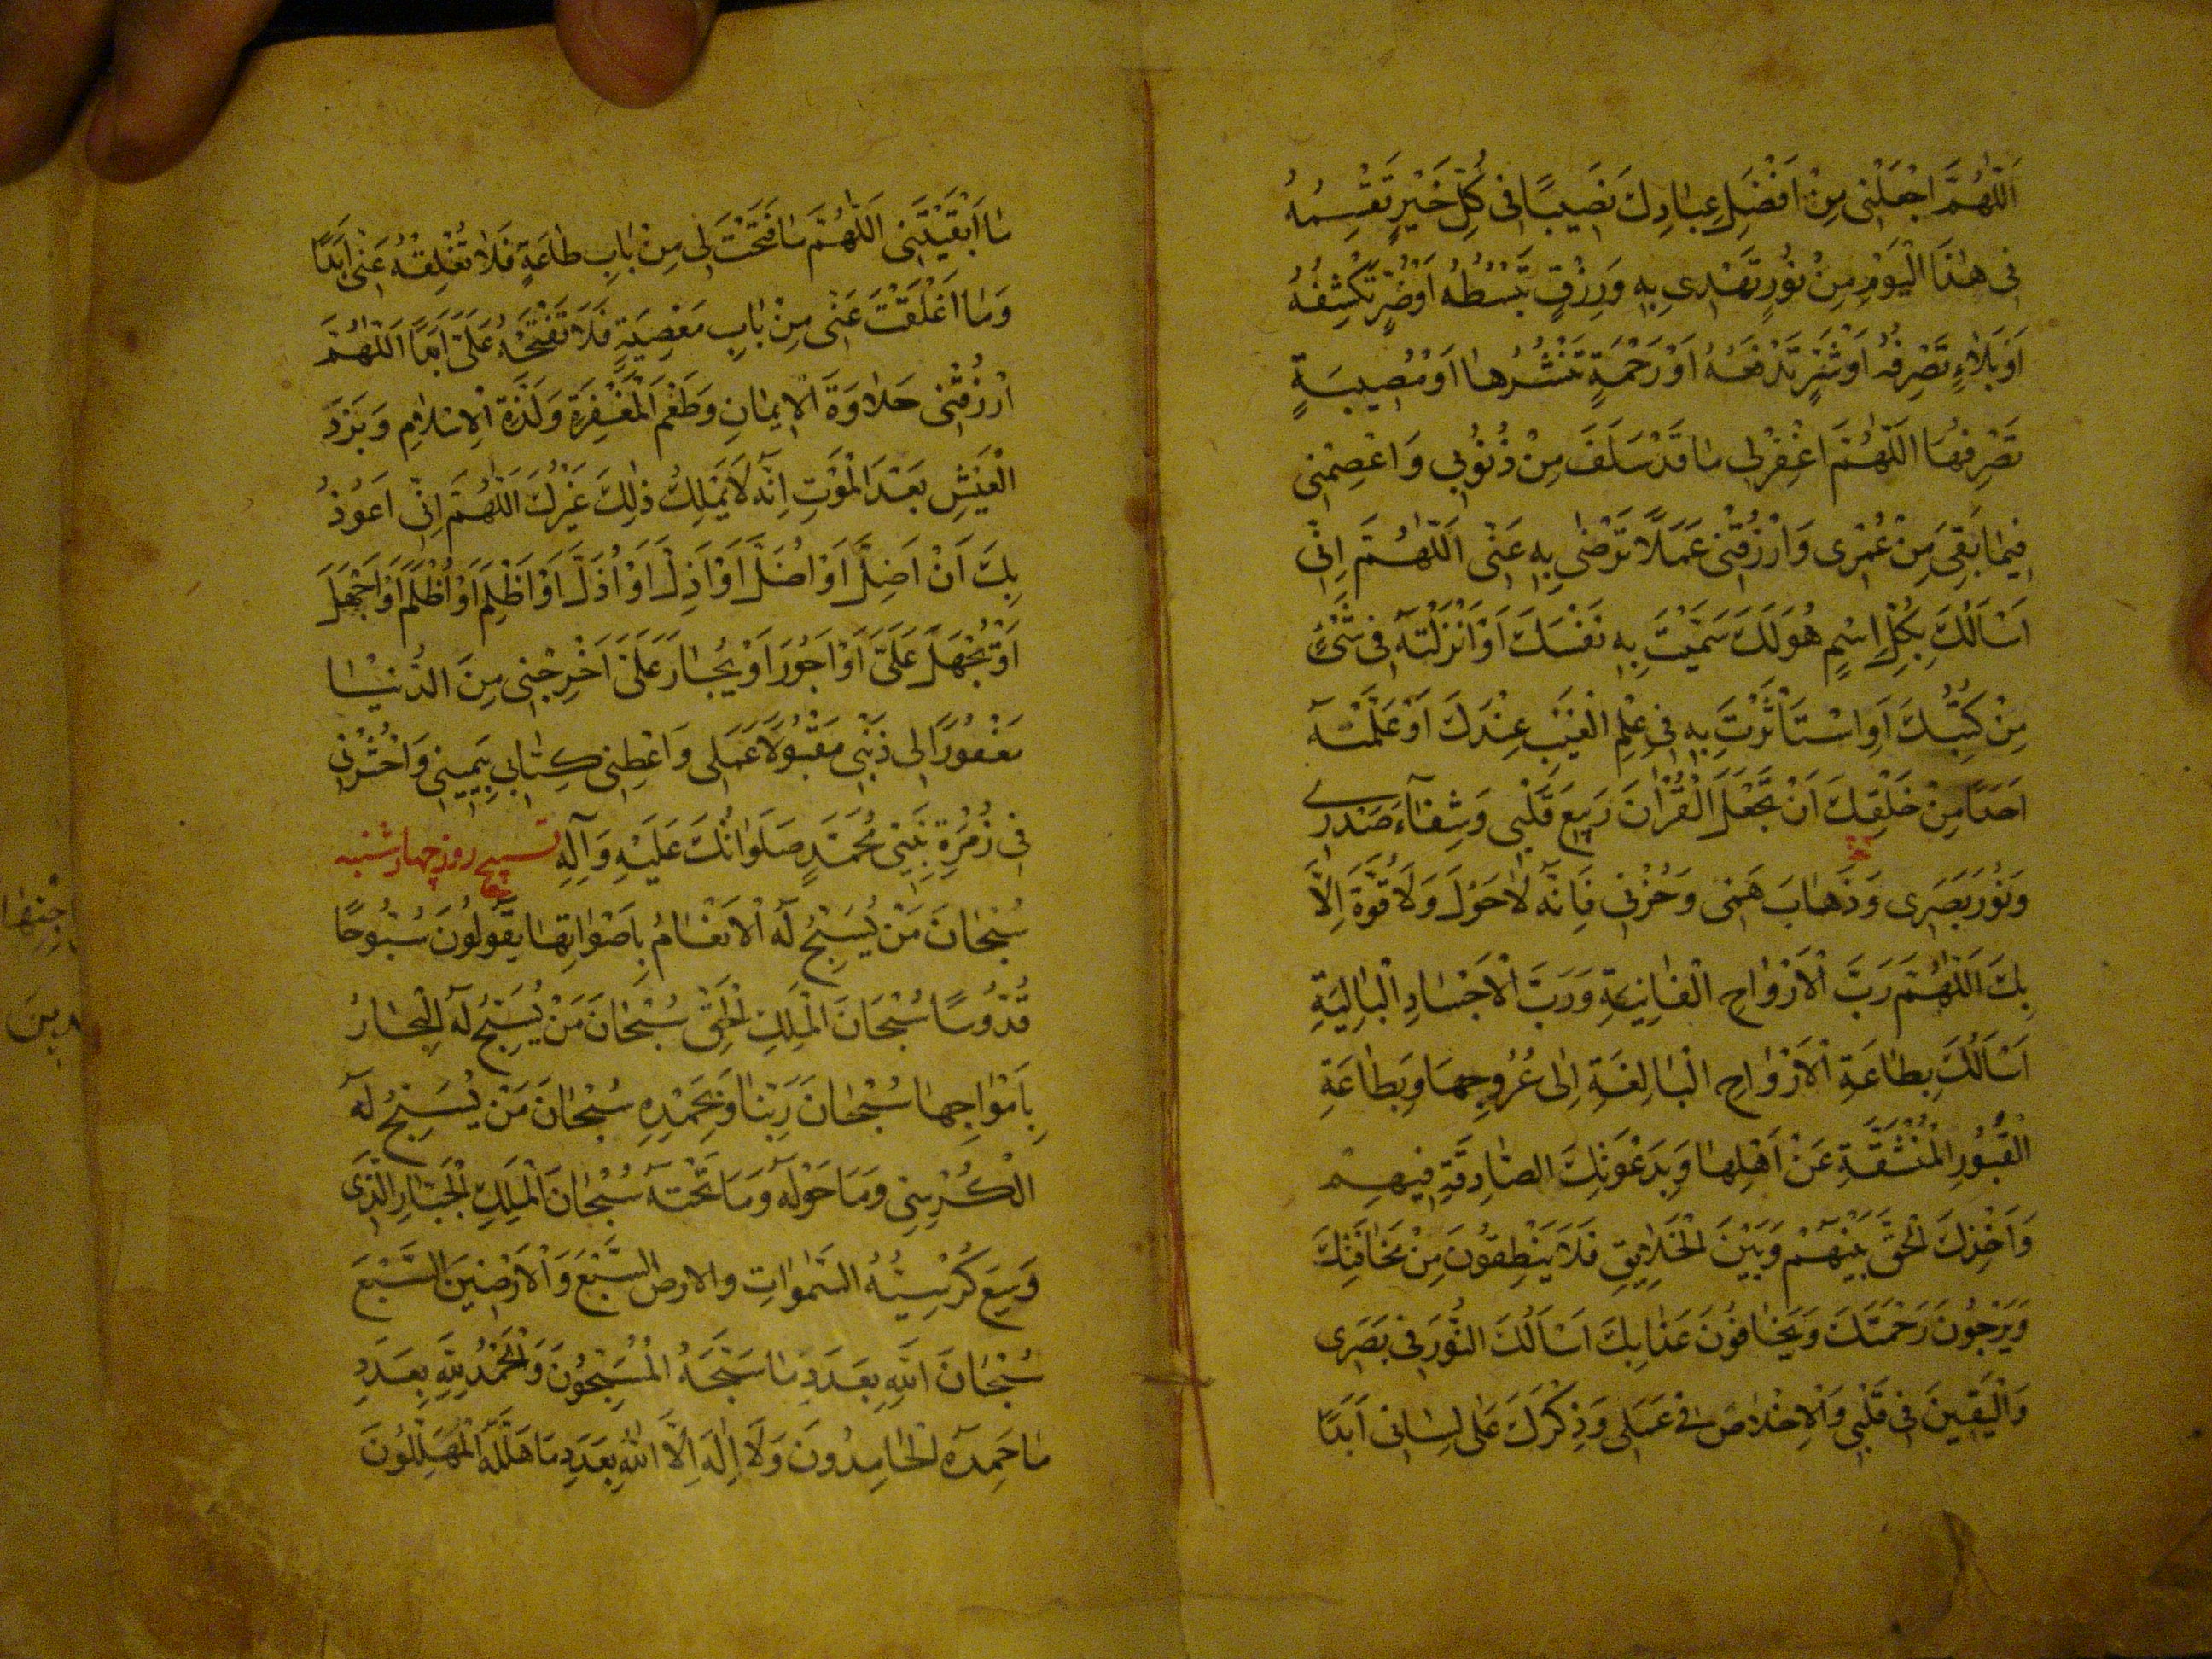 اَللّٰهُمَّ اجْعَلْنٖى مِنْ اَفْضَلِ عِبٰادِكَ نَصٖيبًا فٖى كُلِّ خَيْرٍ تَقْسِمُهُ
فٖى هٰذَا الْيَوْمِ مِنْ نُورٍ تَهْدٖى بِهٖ وَرِزْقٍ تَبْسُطُهُ اَوْضُرٍّ تَكْشِفُهُ
اَوْ بَلٰاءٍ تَصْرِفُهُ اَوْ شَرٍّ تَدْفَعُهُ اَوْ رَحْمَةٍ تَنْشُرُهٰا اَوْ مُصٖيبَةٍ
تَصْرِفُهَا اللّٰهُمَّ اغْفِرْلٖى مٰا قَدْ سَلَفَ مِنْ ذُنُوبٖى وَ اعْصِمْنٖى
فٖيمٰا بَقِىَ مِنْ عُمْرٖى وَ ارْزُقْنٖى عَمَلًا تَرْضٰى بِهٖ عَنّٖى اَللّٰهُمَّ اِنّٖى
اَسْاَلُكَ بِكُلِّ اِسْمٍ هُوَ لَكَ سَمَّيْتَ بِهٖ نَفْسَكَ اَوْ اَنْزَلْتَهُ فٖى شَىْءٍ
مِنْ كُتُبِكَ اَوِ اسْتَاْثَرْتَ بِهٖ فٖى عِلْمِ الْغَيْبِ عِنْدَكَ اَوْ عَلَّمْتَهُ
اَحَدًا مِنْ خَلْقِكَ اَنْ تَجْعَلَ الْقُرْاٰنَ رَبٖيعَ قَلْبٖى وَ شِفٰآءَ صَدْرٖى
وَ نُورَ بَصَرٖى وَ ذَهٰابَ هَمّٖى وَ حُزْنٖى فَاِنَّهُ لٰا حَوْلَ وَ لَا قُوَّةَ اِلّٰا
بِكَ اَللّٰهُمَّ رَبَّ الْاَرْوٰاحِ الْفٰانِيَةِ وَ رَبَّ الْاَجْسٰادِ الْبٰالِيَةِ
اَسْاَلُكَ بِطٰاعَةِ الْاَرْوٰاحِ الْبٰالِغَةِ اِلٰى عُرُوجِهَا وَ بِطٰاعَةِ
الْقُبُورِ الْمُنْشَقَّةِ عَنْ اَهْلِهٰا وَ بِدَعْوَتِكَ الصّٰادِقَةِ فٖيهِمْ
وَ اَخْذِكَ الْحَقَّ بَيْنَهُمْ وَ بَيْنَ الْخَلٰايِقِ فَلَا يَنْطِقُونَ مِنْ مَخٰافَتِكَ
وَ يَرْجُونَ رَحْمَتَكَ وَ يَخٰافُونَ عَذٰابَكَ اَسْاَلُكَ النُّورَ فٖى بَصَرٖى
وَ الْيَقٖينَ فٖى قَلْبٖى وَ الْاِخْلٰاصَ فٖى عَمَلٖى وَ ذِكْرَكَ عَلٰى لِسٰانٖى اَبَدًا
مٰا اَبْقَيْتَنٖى اَللّٰهُمَّ مٰا فَتَحْتَ لٖى مِنْ بٰابِ طٰاعَةٍ فَلٰا تُغْلِقْهُ عَنّٖى اَبَدًا
وَ مٰا اَغْلَقْتَ عَنّٖى مِنْ بٰابِ مَعْصِيَةٍ فَلَا تَفْتَحْهُ عَلَىَّ اَبَدًا اَللّٰهُمَّ
ارْزُقْنٖى حَلٰاوَةَ الْاٖيمٰانِ وَ طَعْمَ الْمَغْفِرَةِ وَ لَذَّةَ الْاِسْلٰامِ وَ بَرْدَ
الْعَيْشِ بَعْدَ الْمَوْتِ اِنَّهُ لَا يَمْلِكُ ذٰلِكَ غَيْرُكَ اَللّٰهُمَّ اِنّٖى اَعُوذُ
بِكَ اَنْ اَضِلَّ اَوْ اُضَلَّ اَوْ اَذِلَّ اَوْ اُذَلَّ اَوْ اَظْلِمَ اَوْ اُظْلَمَ اَوْ اَجْهَلَ
اَوْ يُجْهَلَ عَلَىَّ اَوْ اَجُورَ اَوْ يُجٰارَ عَلَىَّ اَخْرِجْنٖى مِنَ الدُّنْيٰا
مَغْفُورًا لٖى ذَنْبٖى مَقْبُولًا عَمَلٖى وَ اَعْطِنٖى كِتٰابٖى بِيَمٖينٖى وَ احْشُرْنٖى
فٖى زُمْرَةِ نَبِيّٖى مُحَمَّدٍ صَلَوٰاتُكَ عَلَيْهِ وَ آلِهِ تسبيح روز چهارشنبه
سُبْحٰانَ مَنْ يُسَبِّحُ لَهُ الْاَنْعٰامُ بِاَصْوٰاتِهٰا يَقُولُونَ سُبُّوحًا
قُدُّوسًا سُبْحَانَ الْمَلِكِ الْحَقِّ سُبْحٰانَ مَنْ يُسَبِّحُ لَهُ الْبِحٰارُ
بِاَمْوٰاجِهٰا سُبْحٰانَ رَبِّنٰا وَ بِحَمْدِهِ سُبْحٰانَ مَنْ يُسَبِّحُ لَهُ
الْكُرْسِىُّ وَ مَا حَوْلَهُ وَ مَا تَحْتَهُ سُبْحٰانَ الْمَلِكِ الْجَبّٰارِ الَّذٖى
وَسِعَ كُرْسِيُّهُ السَّمٰوٰاتِ و الارض السَّبْعَ وَ الْاَرَضٖينَ السَّبْعَ
سُبْحٰانَ اللّٰهِ بِعَدَدِ مٰا سَبَّحَهُ الْمُسَبِّحُونَ وَ الْحَمْدُ لِلّٰهِ بِعَدَدِ
مٰا حَمِدَهُ الْحٰامِدُونَ وَ لَا اِلٰهَ اِلَّا اللّٰهُ بِعَدَدِ مَا هَلَّلَهُ الْمُهَلِّلُونَ